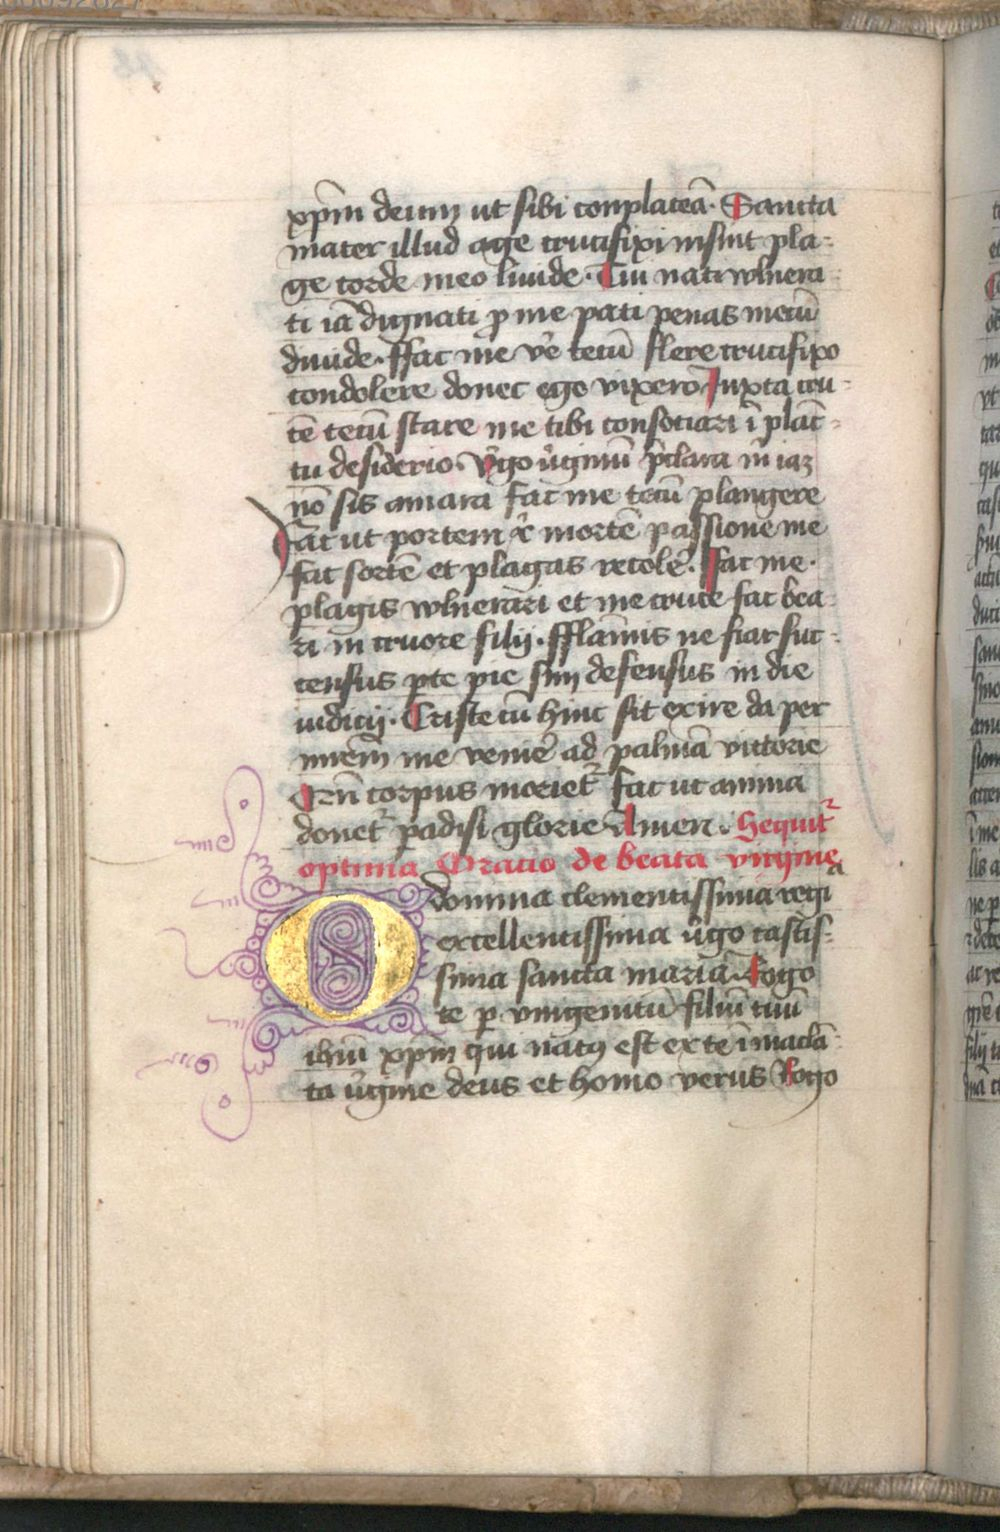 xp̄m deum ut sibi conplaceā. Sancta
mater illud age crucifixi insint pla-
ge corde meo liuide. Tui nati wlnera-
ti iā dignati ꝑ me pati penas mecū
diuide. ffac me v̄e tecū flere crucifixo
condolere donec ego vixero Juxta cru-
cē tecū stare me tibi consociari ī planc̄-
tu desiderio. v̄go v̄ginū p̄clara m̄ iaꝫ
nō sis amara fac me tecū plangere
ffac ut portem x̄ mortē passionē me
fac sortē et plagas recolē. ffac me.
plagis wlnerari et me cruce fac bea-
ri in cruore filij. fflam̄is ne fiar suc-
census ꝑte pie sim defensus in die
iudicij. Criste cū hinc sit exire da per
mr̄em me venir̄ ad palmā victorie
Qrn̄ corpus moriet᷑ fac ut anima
donet᷑ ꝑadisi glorie Amen. Sequit᷑
optima Oracio de beata virgine
O domina clementissima regi
na
excellentissima v̄go castis-
sima sancta maria Rogo
te ꝑ vnigenitū filiū tuū
ihm̄ xp̄m qui natꝰ est ex te īmacula-
ta v̄gine deus et homo verus Rogo